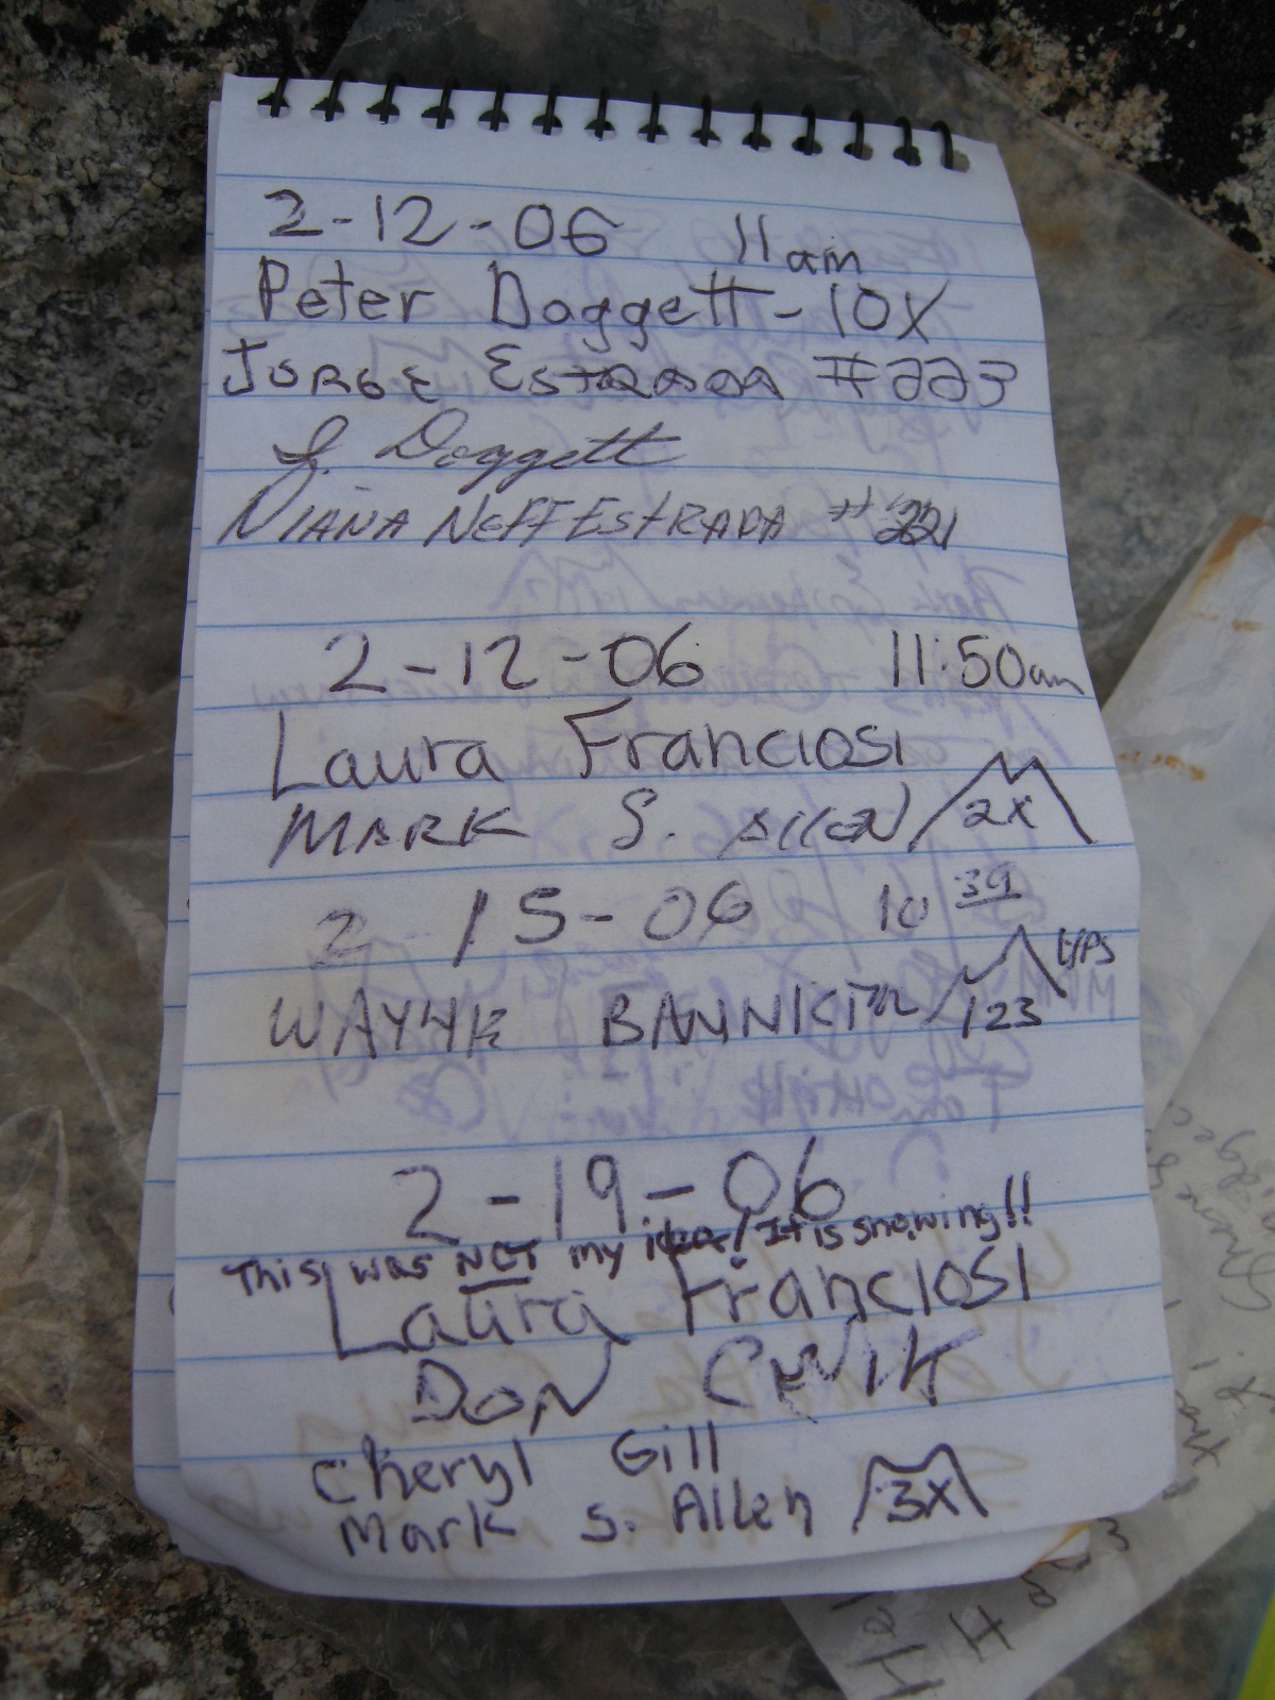 2-12-06 11am
Peter Doggett - 10X
JORGE ESTRADA #223
J. Doggett
DIANA NEFF ESTRADA #221
2-12-06 11:50am
Laura Franciosi
MARK S. Allen 2X
2 15-06 10 39
WAYNE 123
2-19-06
This was NOT my idea! It is snowing!!
Laura Franciosi
DON
Cheryl Gill
Mark S. Allen 3X